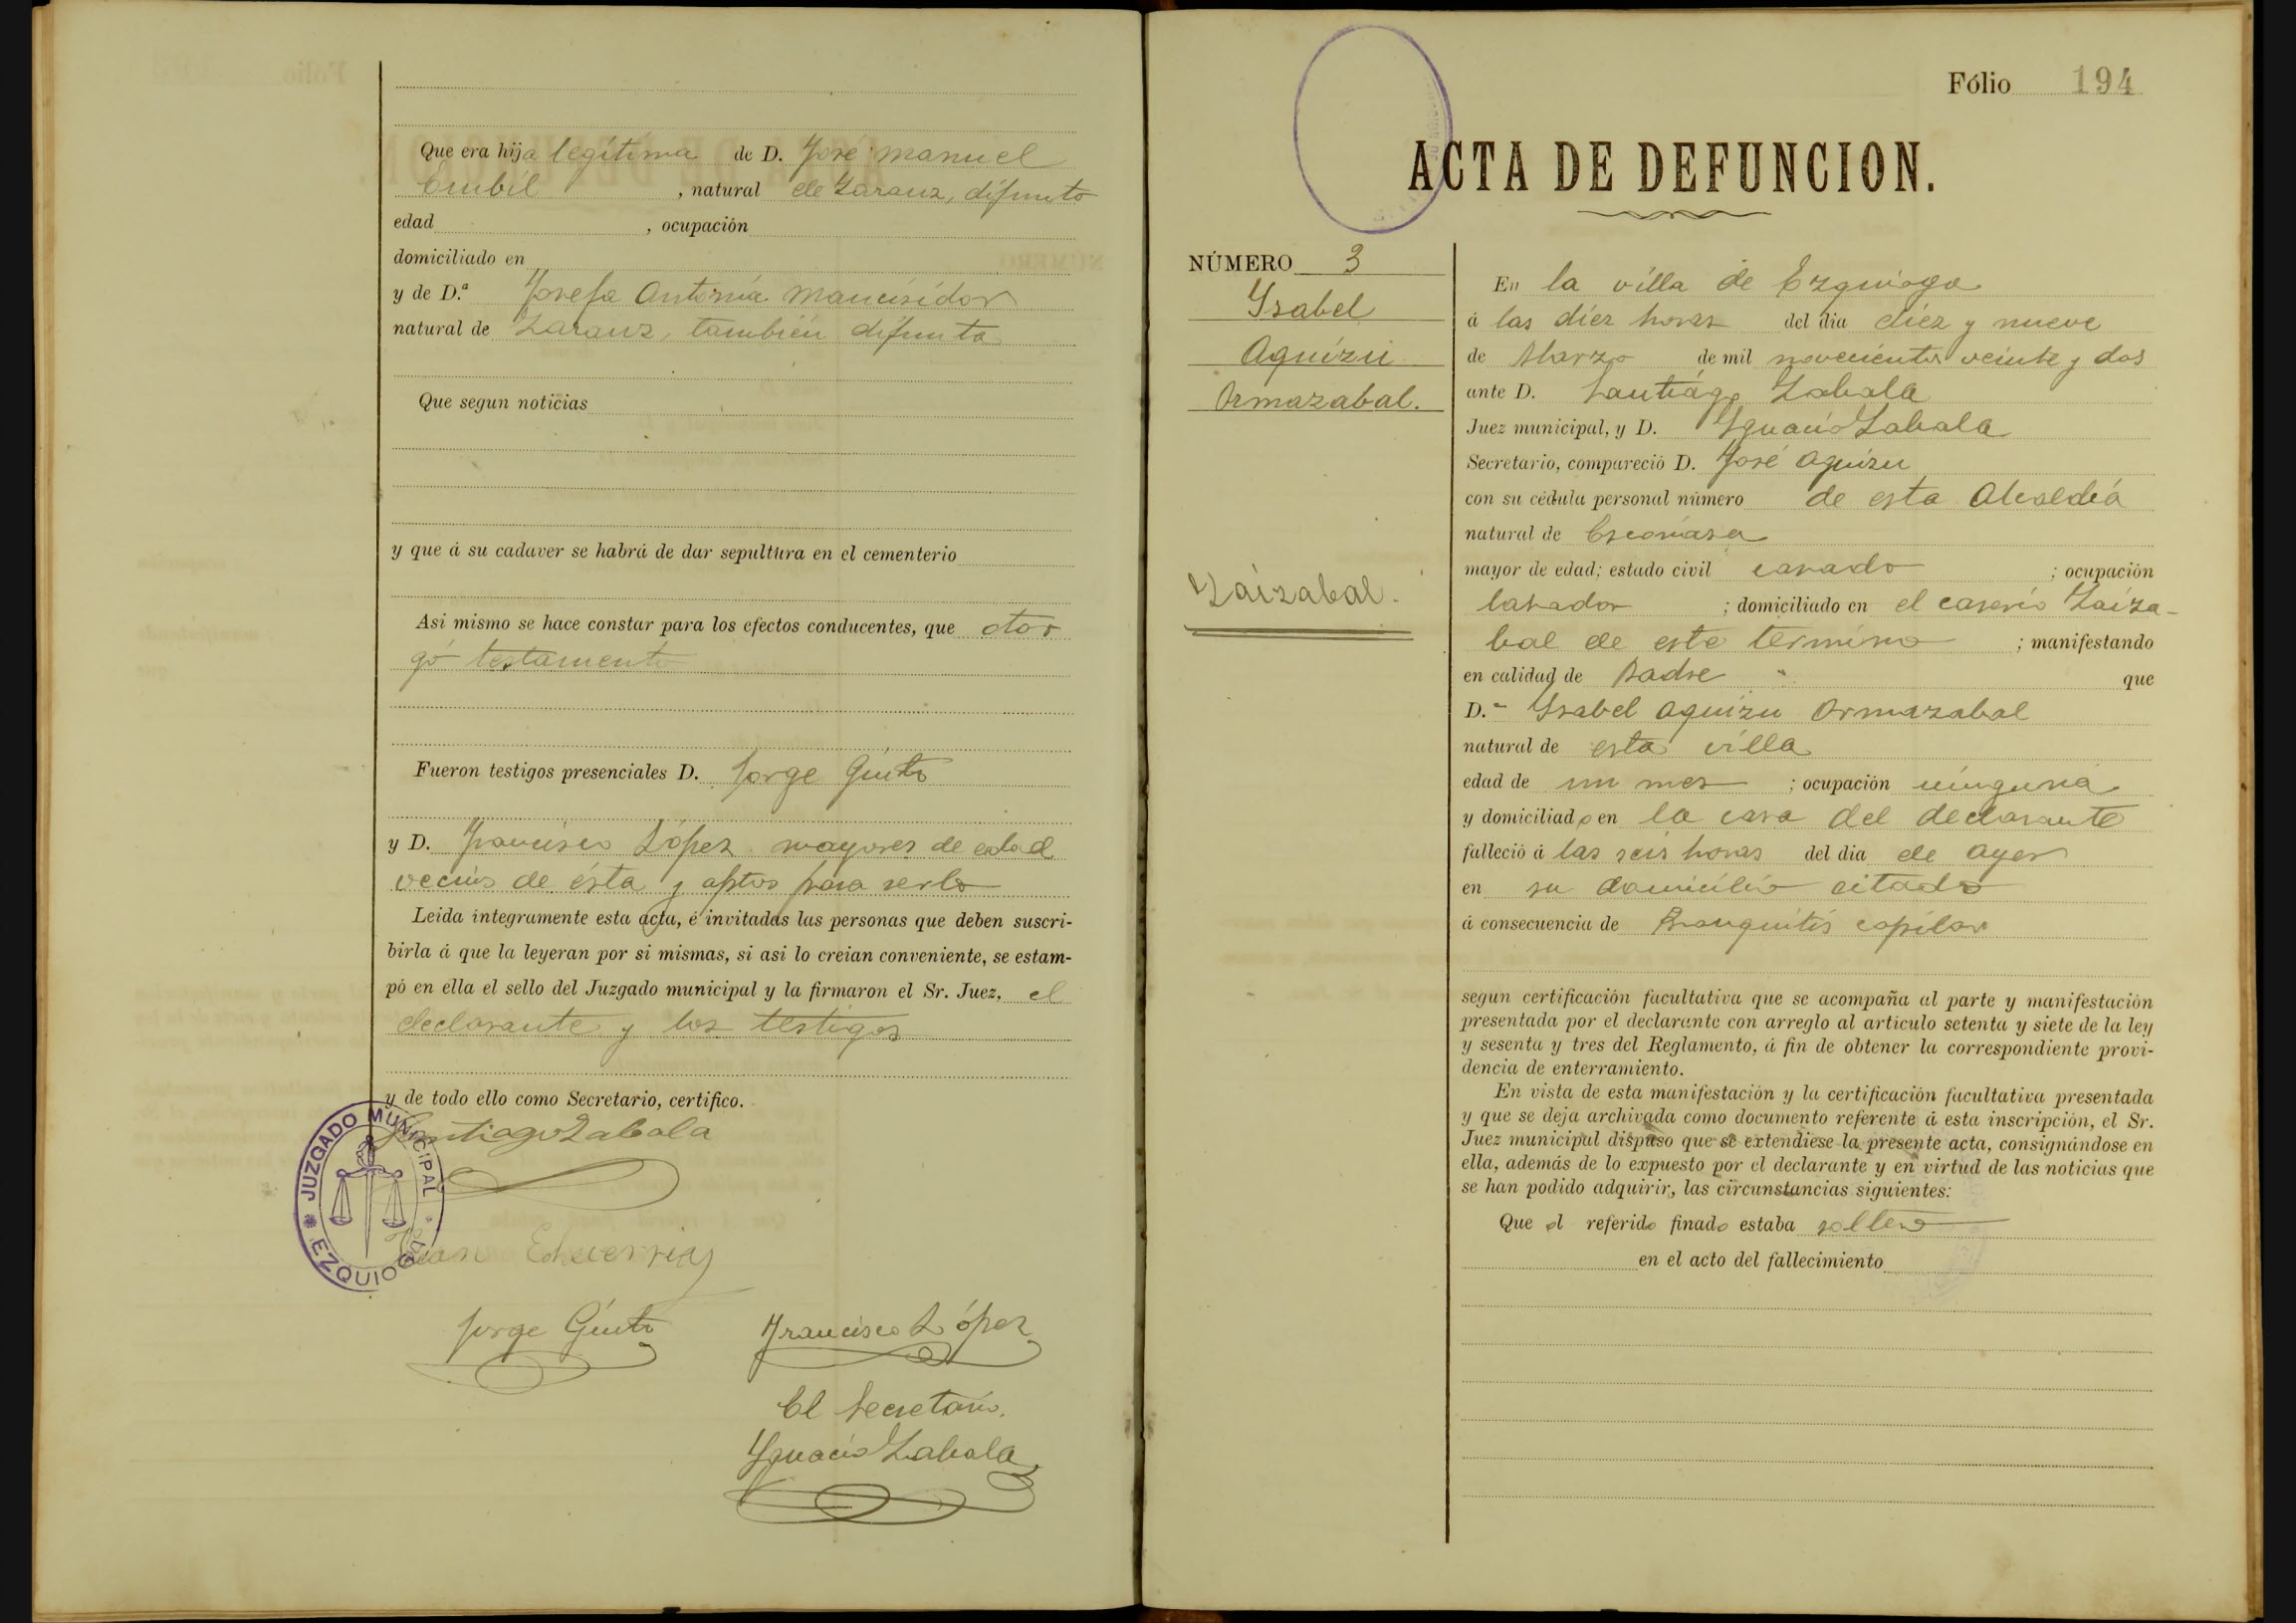 Que era hija legítima de D. José Manuel
Embil, natural de Zarauz, difunto
edad , ocupación
domiciliado en
y de D.ª Josefa Antonia Mancisidor
natural de Zarauz, también difunta
Que segun noticias
y que á su cadaver se habrá de dar sepultura en el cementerio
Asi mismo se hace constar para los efectos conducentes, que otor
gó testamento
Fueron testigos presenciales D. Jorge Guito
y D. Francisco López mayores de edad
vecinos de ésta y aptos para serlo
Leida integramente esta acta, é invitadas las personas que deben suscri-
birla á que la leyeran por si mismas, si asi lo creian conveniente, se estam-
pó en ella el sello del Juzgado municipal y la firmaron el Sr. Juez, el
declarante y los testigos
y de todo ello como Secretario, certifico.
Santiago Zabala
JUZGADO MUNICIPAL DE EZQUIOGA
Juan Echeverria
Jorge Guito Francisco López
El Secretario.
Ignacio Zabala
Fólio 194
ACTA DE DEFUNCION.
NÚMERO 3
Ysabel
Aguizu
Ormazabal.
Zaizabal.
En la villa de Ezquioga
á las diez horas del dia diez y nueve
de Marzo de mil novecientos veinte y dos
ante D. Santiago Zabala
Juez municipal, y D. Ygnacio Zabala
Secretario, compareció D. José Aguizu
con su cédula personal número de esta Alcaldía
natural de
mayor de edad; estado civil casado ; ocupación
labrador ; domiciliado en el caserío Zaiza-
bal de este término ; manifestando
en calidad de Padre que
D.ª Ysabel Aguizu Ormazabal
natural de esta villa
edad de un mes ; ocupación ninguna
y domiciliado en la casa del declarante
falleció á las seis horas del dia de ayer
en su domicilio citado
á consecuencia de Bronquitis capilar
segun certificación facultativa que se acompaña al parte y manifestación
presentada por el declarante con arreglo al articulo setenta y siete de la ley
y sesenta y tres del Reglamento, á fin de obtener la correspondiente provi-
dencia de enterramiento.
En vista de esta manifestación y la certificación facultativa presentada
y que se deja archivada como documento referente á esta inscripción, el Sr.
Juez municipal dispuso que se extendiese la presente acta, consignándose en
ella, además de lo expuesto por el declarante y en virtud de las noticias que
se han podido adquirir, las circunstancias siguientes:
Que el referido finado estaba soltero
en el acto del fallecimiento